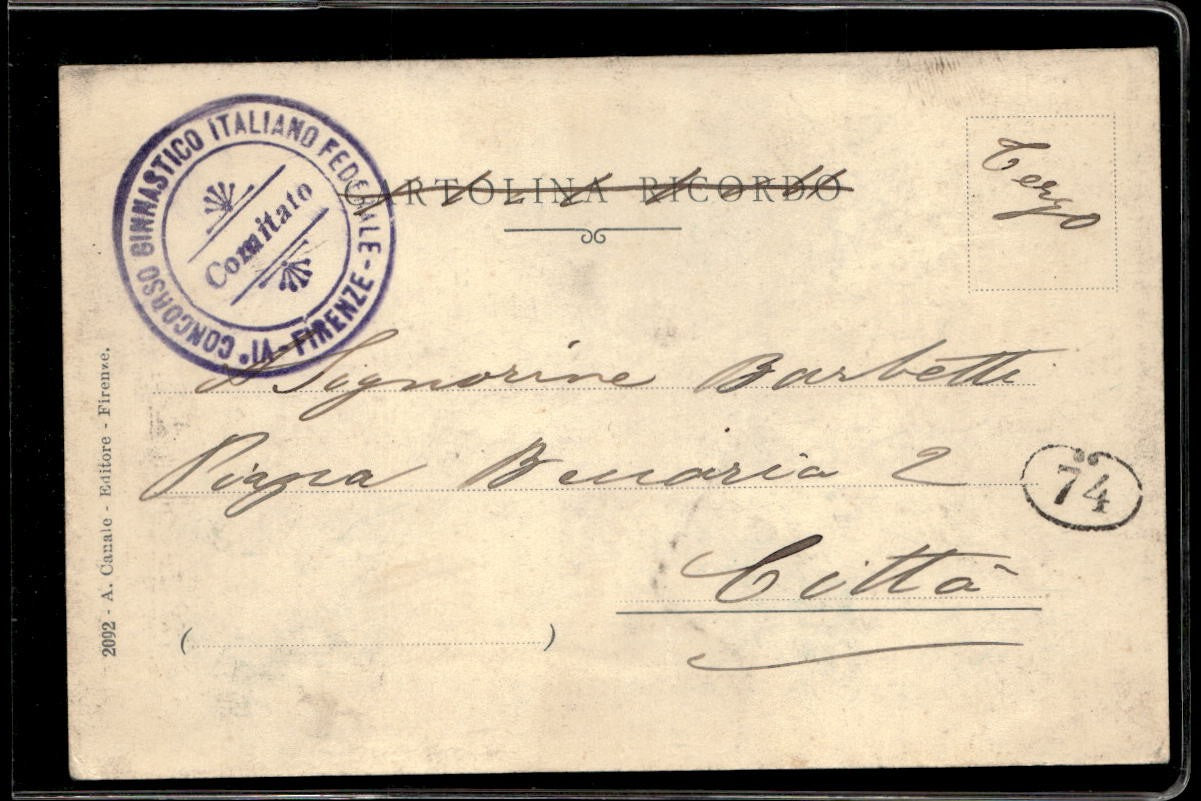 VI° CONCORSO GINNASTICO ITALIANO FEDERALE - FIRENZE -
Comitato
CARTOLINA RICORDO
Terzo
Signorine Barbetti
Piazza Beccaria 2
74
Città
( )
2092 - A. Canale - Editore - Firenze.